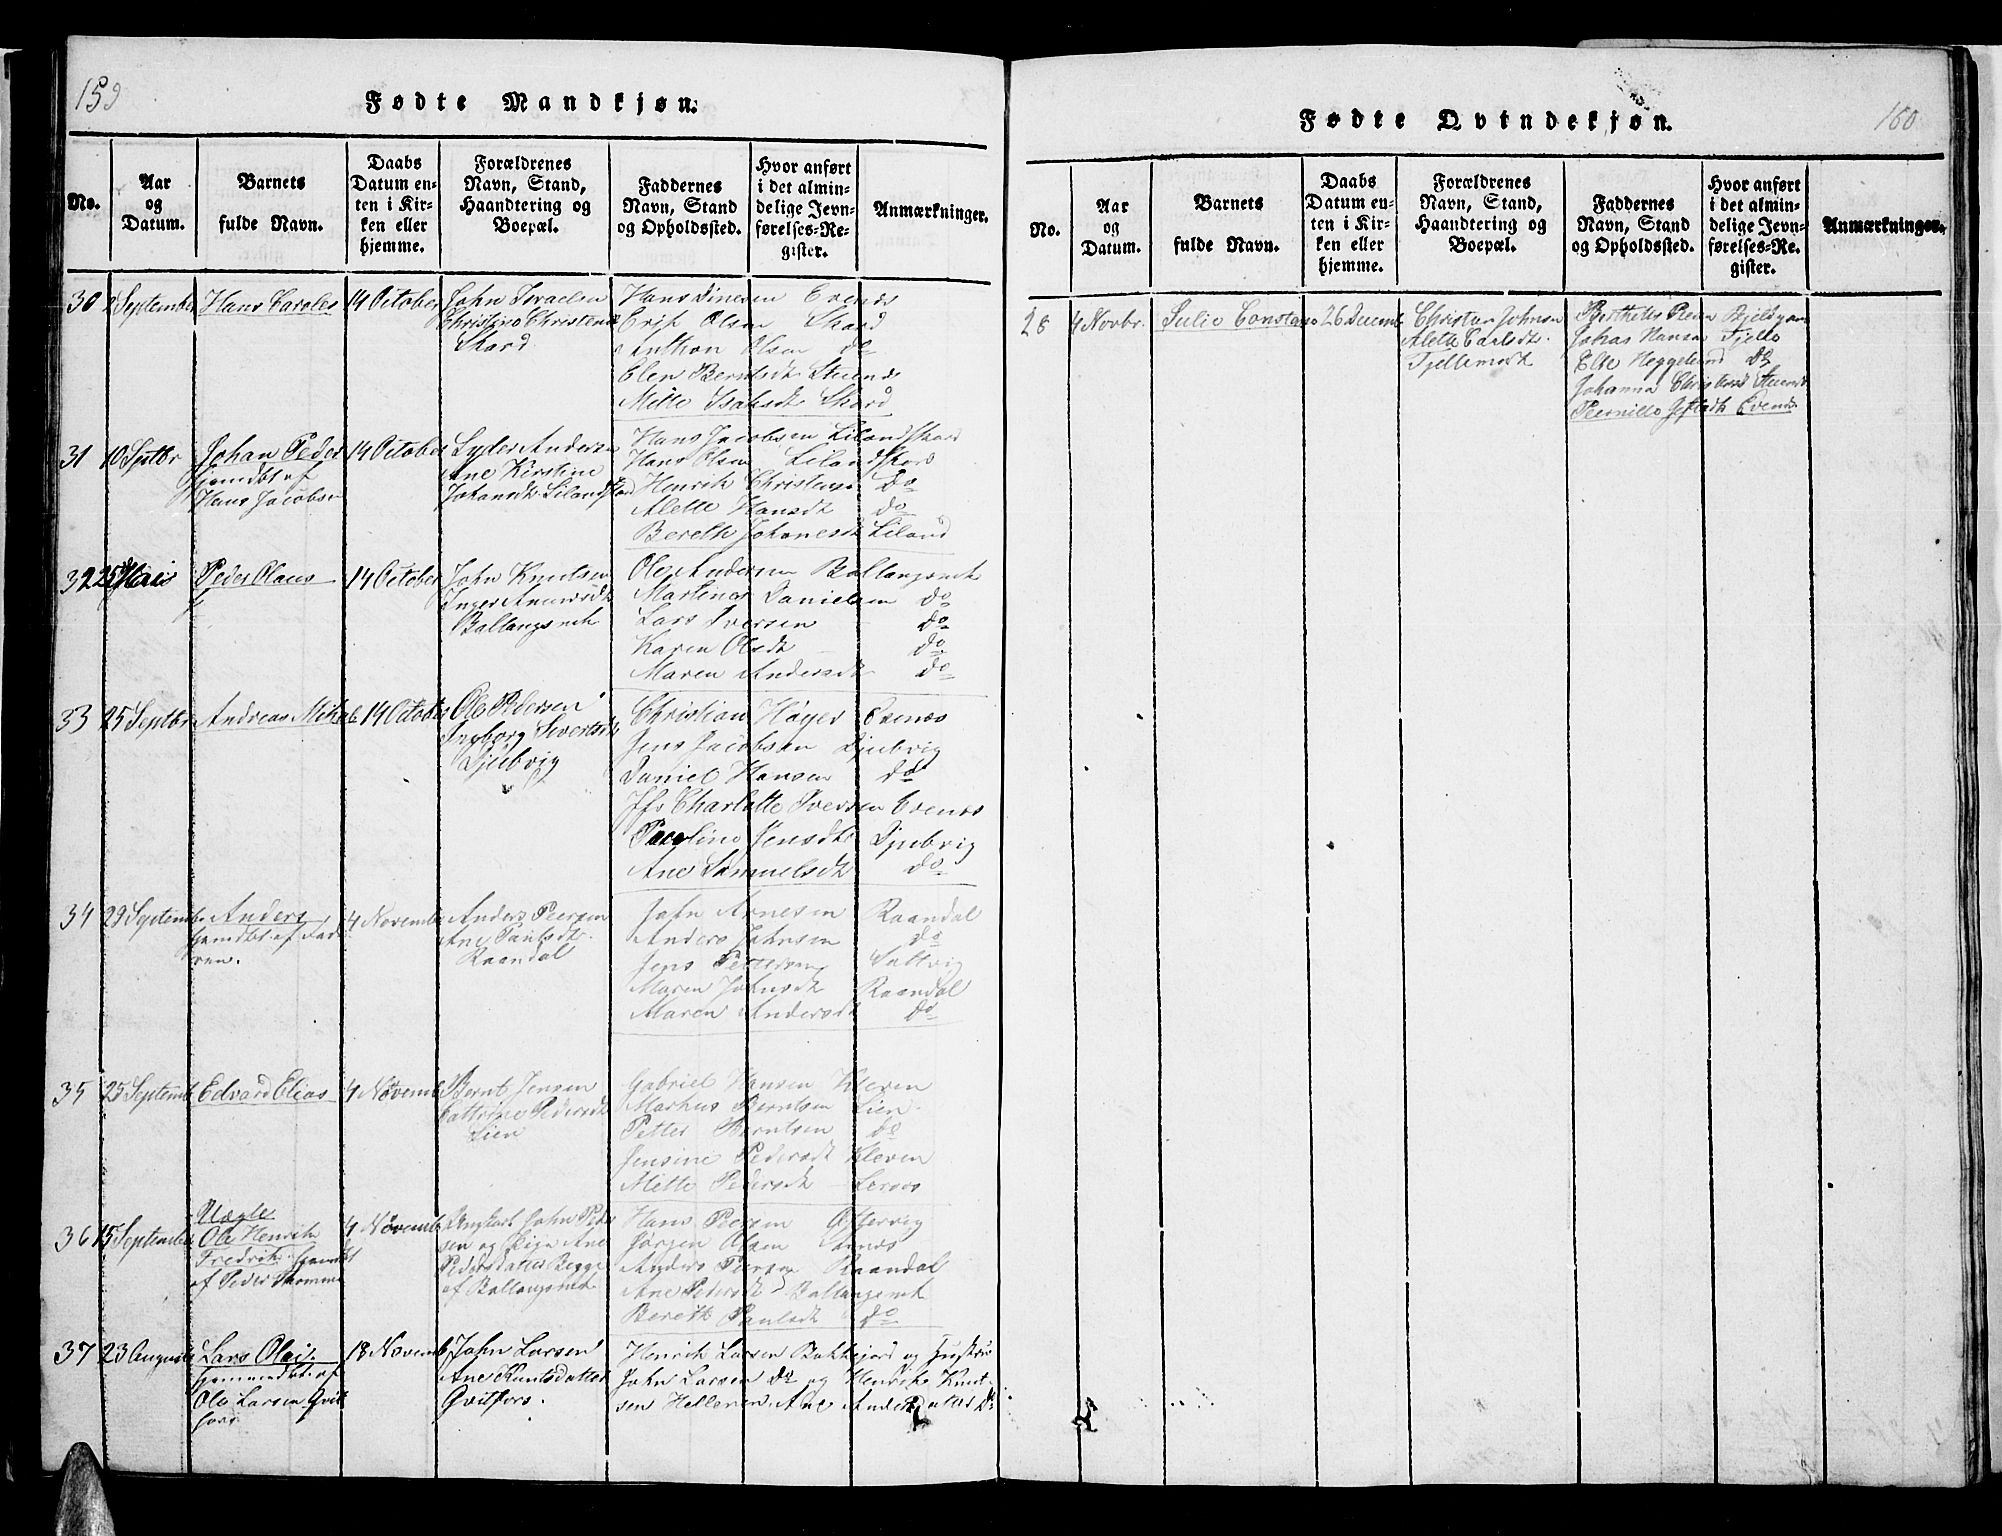 159
Fødte Mandkjøn.
No.
Aar
og
Datum.
Barnets
fulde Navn.
Daabs
Datum en-
ten i Kir-
ken eller
hjemme.
Forældrenes
Navn, Stand,
Haandtering og
Boepæl.
Faddernes
Navn, Stand
og Opholdssted.
Hvor anført
i det almin-
delige Jevn-
førelses-Re-
gister.
Anmærkninger.
30 2 September Hans Caroles 14 October
John Israelsen
Christine Christensd
Skard
Hans Dinesen Evenæs
Erik Olsen Skard
Anthon Olsen do
Elen Berntsdt
Mette Isaksdt Skard
31 10 Septbr Johan Peder 14 October
hjemdbt af
Hans Jacobsen
Lyder Andersen
Ane Kirstine
Johansdt Lilandskard
Hans Jacobsen Lilandskard
Hans Olsen Lilandskard
Henrik Christensen Do
Alette Hansdt do
Bereth Johanesdt Liland
32 25 Peder Olaus 14 October
John Knutsen
Inger
Ballangsmk
Ole Andersen Ballangsmk
Martinas Danielsen do
Lars Iversen do
Karen Olsdt do
Maren Andersdt do
33 25 Septbr Andreas Mikal 14 October
Ole Pedersen
Ingborg Sivertsdt
Djubvig
Christian Høyer Evenæs
Jens Jacobsen Djubvig
Daniel Hansen do
Jfr Charlotte Iversen Evenæs
Paoline Jensdt Djubvig
Ane Samuelsdt do
34 29 Septemb Anders 4 Novemb
hjemdbt af Fad
ren.
Anders Peersen
Ane Paulsdt
Raandal
John Arnesen Raandal
Anders Johnsen do
Jens Pettersen
Maren Johnsdt Raandal
Maren Andersdt do
35 25 Septemb Edvard Elias 4 Novemb
Bernt Jensen
Cathrine Pedersdt
Lien
Gabriel Hansen Kleven
Markus Berntsen Lien
Petter Berntsen do
Jensine Pedersdt Kleven
Mette Pedersdt
36 15 September Uægte 4 Novemb
Ole Henrik
Fredrik hjemdbt
af Peder Thomme
Ungkarl John Peder
sen og Pige Ane
Pedersdatter Begge
af Ballangsmk
Hans Peersen
Jørgen Olsen
Anders Peersen Raandal
Ane Pedersdt Ballangsmk
Bereth Paulsdt do
37 23 August Lars Olai. 18 Novemb
hjemmedbt af
Ole Larsen Qvit
fors
John Larsen
Ane Knutsdatter
Qvitfors.
Henrik Larsen Bakkejord og Hustru
John Larsen do og Henrik Knut-
sen Helleren Ane Andersdatter do
160
Fødte Qvindekjøn.
No.
Aar
og
Datum.
Barnets
fulde Navn.
Daabs
Datum en-
ten i Kir-
ken eller
hjemme.
Forældrenes
Navn, Stand,
Haandtering og
Boepæl.
Faddernes
Navn, Stand
og Opholdssted.
Hvor anført
i det almin-
delige Jevn-
førelses-Re-
gister.
Anmærkninger.
28 4 Novbr. Julie Constanse 26 Decemb
Christen Johnsen
Alette Carlsdt.
Fjellemark
Berthells
Johas Hansen Fjelle
Else Heggelund do
Johanna
Pernille Evenæs